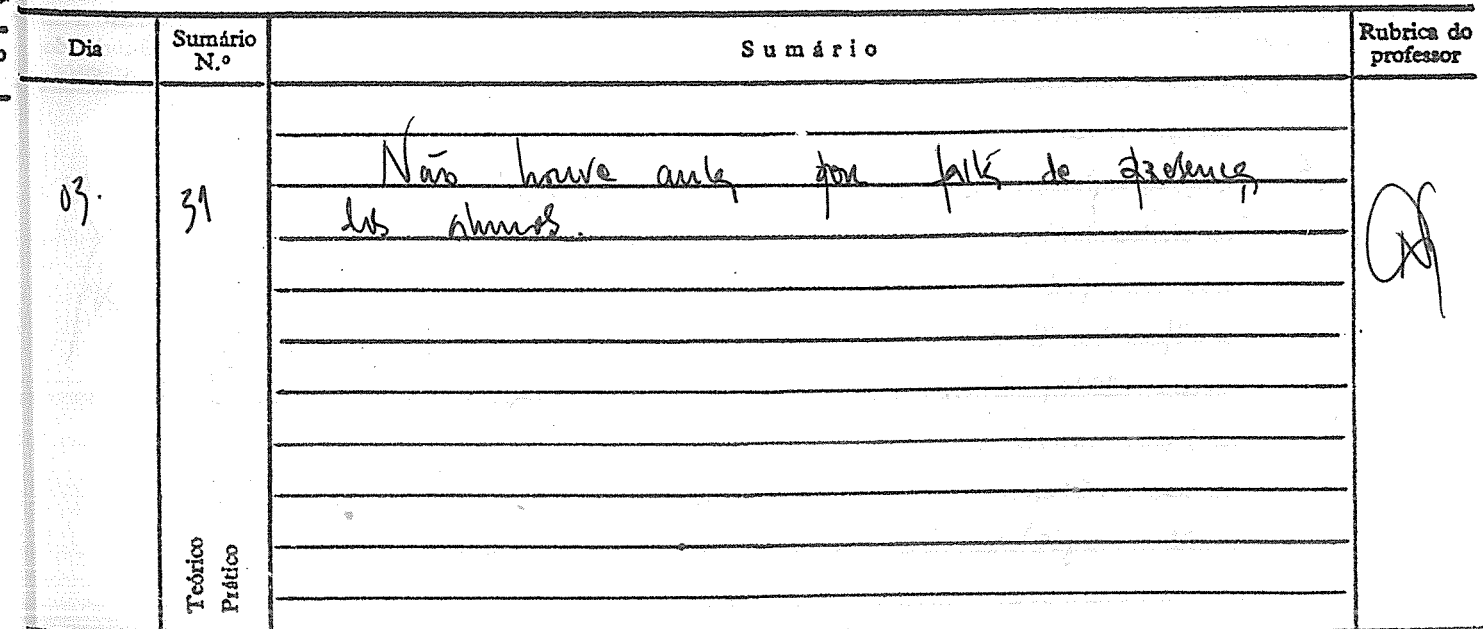 Dia
Sumário
N.º
Sumário
Rubrica do
professor
03.
31
Não houve aula por falta de presença
dos alunos.
Teórico
Prático